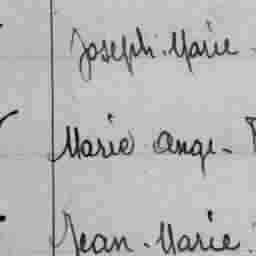 Joseph. Marie -
Marie Ange -
Jean. Marie.